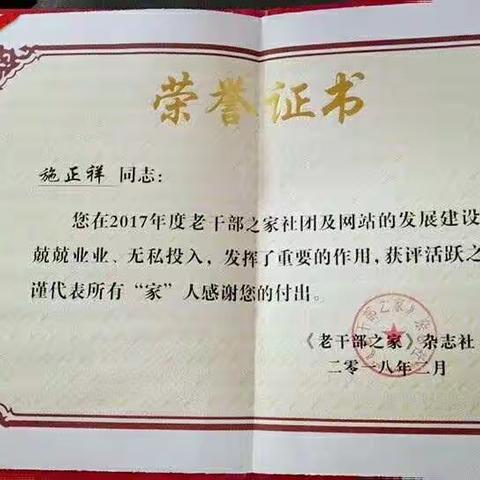 荣誉证书
施正祥 同志：
您在2017年度老干部之家社团及网站的发展建设
兢兢业业、无私投入，发挥了重要的作用，获评活跃之
谨代表所有“家”人感谢您的付出。
《老干部之家》杂志社
二零一八年二月